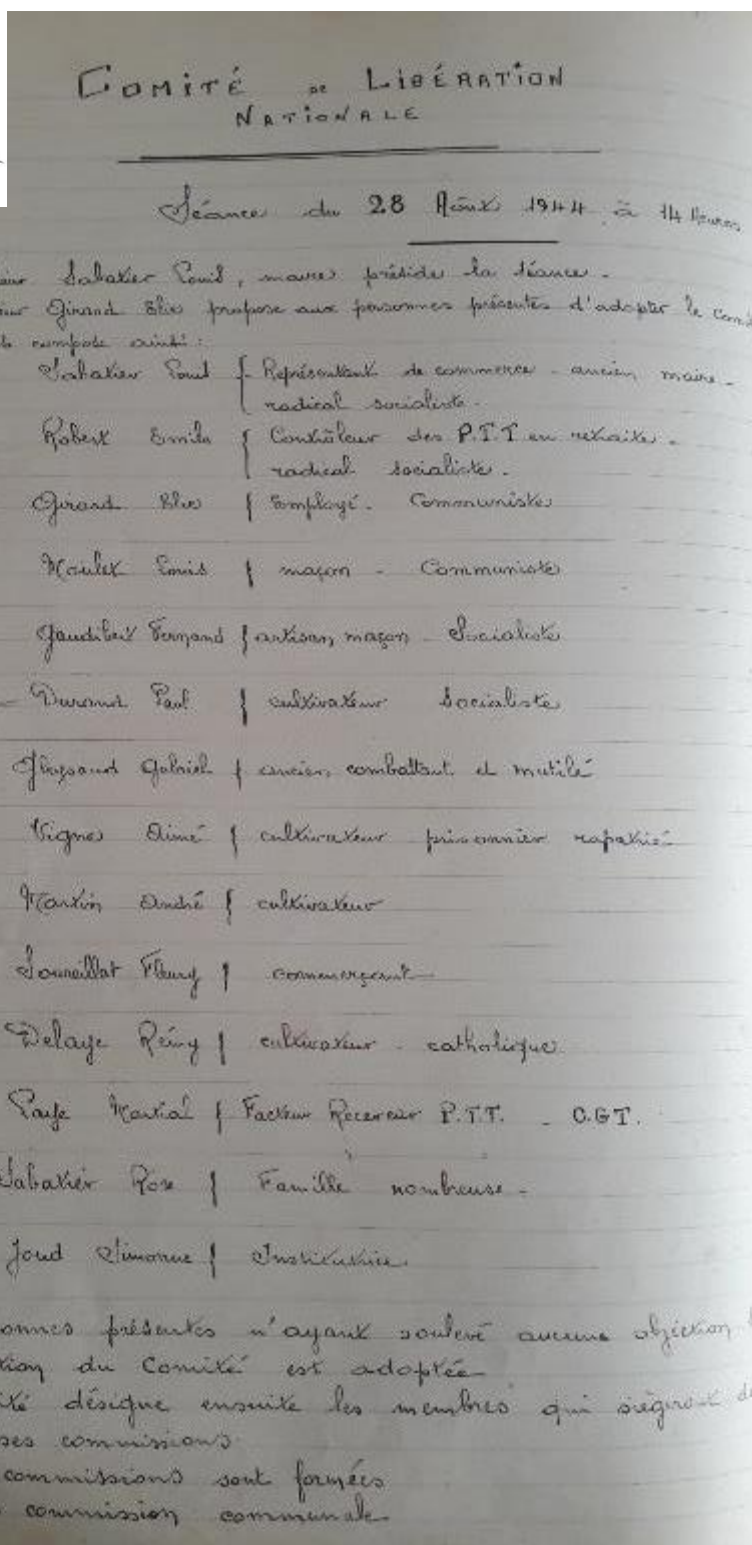 COMITÉ DE LIBÉRATION
NATIONALE
Séance du 28 Août 1944 à 14 Heures
Sabatier Paul, maire préside la séance.
Girand Elie propose aux personnes présentes d'adopter le
compose ainsi :
Sabatier Paul { Représentant de commerce - ancien maire -
radical socialiste.
Robert Emile { Contrôleur des P.T.T en retraite.
radical socialiste.
Girand Elie { Employé - Communiste
Moulet Louis { maçon - Communiste
Gaudibert Fernand { artisan maçon - Socialiste
- Durand Paul { cultivateur Socialiste
Gabriel { ancien combattant et mutilé
Vigne Aimé { cultivateur prisonnier rapatrié
Martin André { cultivateur
Fleury { commerçant
Delaye Rémy { cultivateur - catholique
Martial { Facteur Receveur P.T.T. - C.G.T.
Sabatier Rose { Famille nombreuse -
Joud Simonne { Institutrice.
onnes présentes n'ayant soulevé aucune objection
tion du Comité est adoptée
ité désigne ensuite les membres qui siégront
ses commissions
commissions sont formées
commission communale